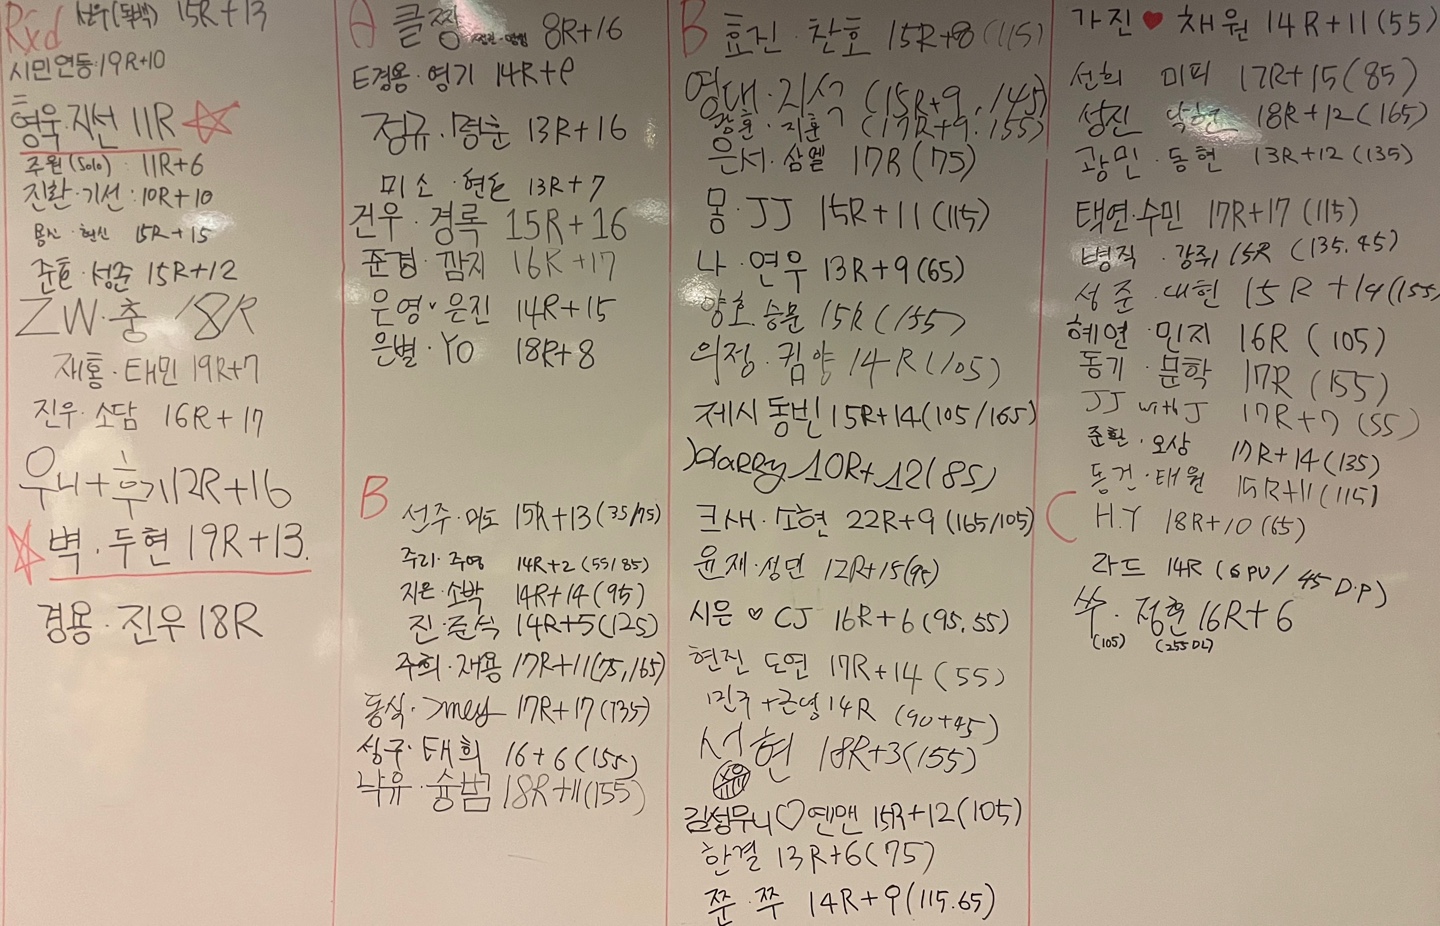 Rxd 선우(동백) 15R+13
시민연동:19R+10
형욱·지선 11R
주원(solo) : 11R+6
진환·기선 : 10R+10
용신·현신 15R+15
준호·성준 15R+12
ZW·충 18R
재홍·태민 19R+7
진우·소담 16R+17
우니+후기 12R+16
벽·두현 19R+13.
경용·진우 18R
A 클짱 8R+16
E경용·영기 14R+9
정규·명훈 13R+16
미소·현승 13R+7
건우·경록 15R+16
준경·깜지 16R+17
은영·은진 14R+15
은별·YO 18R+8
B 선주·미도 15R+13(35/75)
주리·주영 14R+2(55/85)
지은·소박 14R+14(95)
진·준식 14R+5(125)
주희·재용 17R+11(75,165)
동식·Jmey 17R+17(135)
성구·태희 16+6(155)
낙유·숭범 18R+11(155)
B 효진·찬호 15R+8(115)
영대·지석 (15R+9, 145)
강훈·지훈 (17R+9.155)
은서·삼엘 17R(75)
몽·JJ 15R+11(115)
나·연우 13R+9(65)
양호·승문 15R(155)
의정·귐양 14R(105)
제시 동빈 15R+14(105/165)
Harry 10R+12(85)
크새·소현 22R+9(165/105)
윤재·성민 12R+15(95)
시은♡CJ 16R+6(95.55)
현진 도연 17R+14(55)
민주+근영 14R (90+45)
서현 18R+3(155)
김성무니♡옌맨 15R+12(105)
한결 13R+6(75)
쭌·쭈 14R+9(115.65)
가진♥채원 14R+11(55)
선희 미피 17R+15(85)
성진 낙현 18R+12(165)
광민·동현 13R+12(135)
택연·수민 17R+17(115)
병직·강쥐 15R (135.45)
성준·대현 15R+19(155)
혜연·민지 16R(105)
동기·문학 17R(155)
JJ with J 17R+7(55)
준환·오상 17R+14(135)
동건·태원 15R+11(115)
C H.Y 18R+10(65)
라드 14R(6PV/45D.P)
쑤·정훈 16R+6
(105) (255DL)